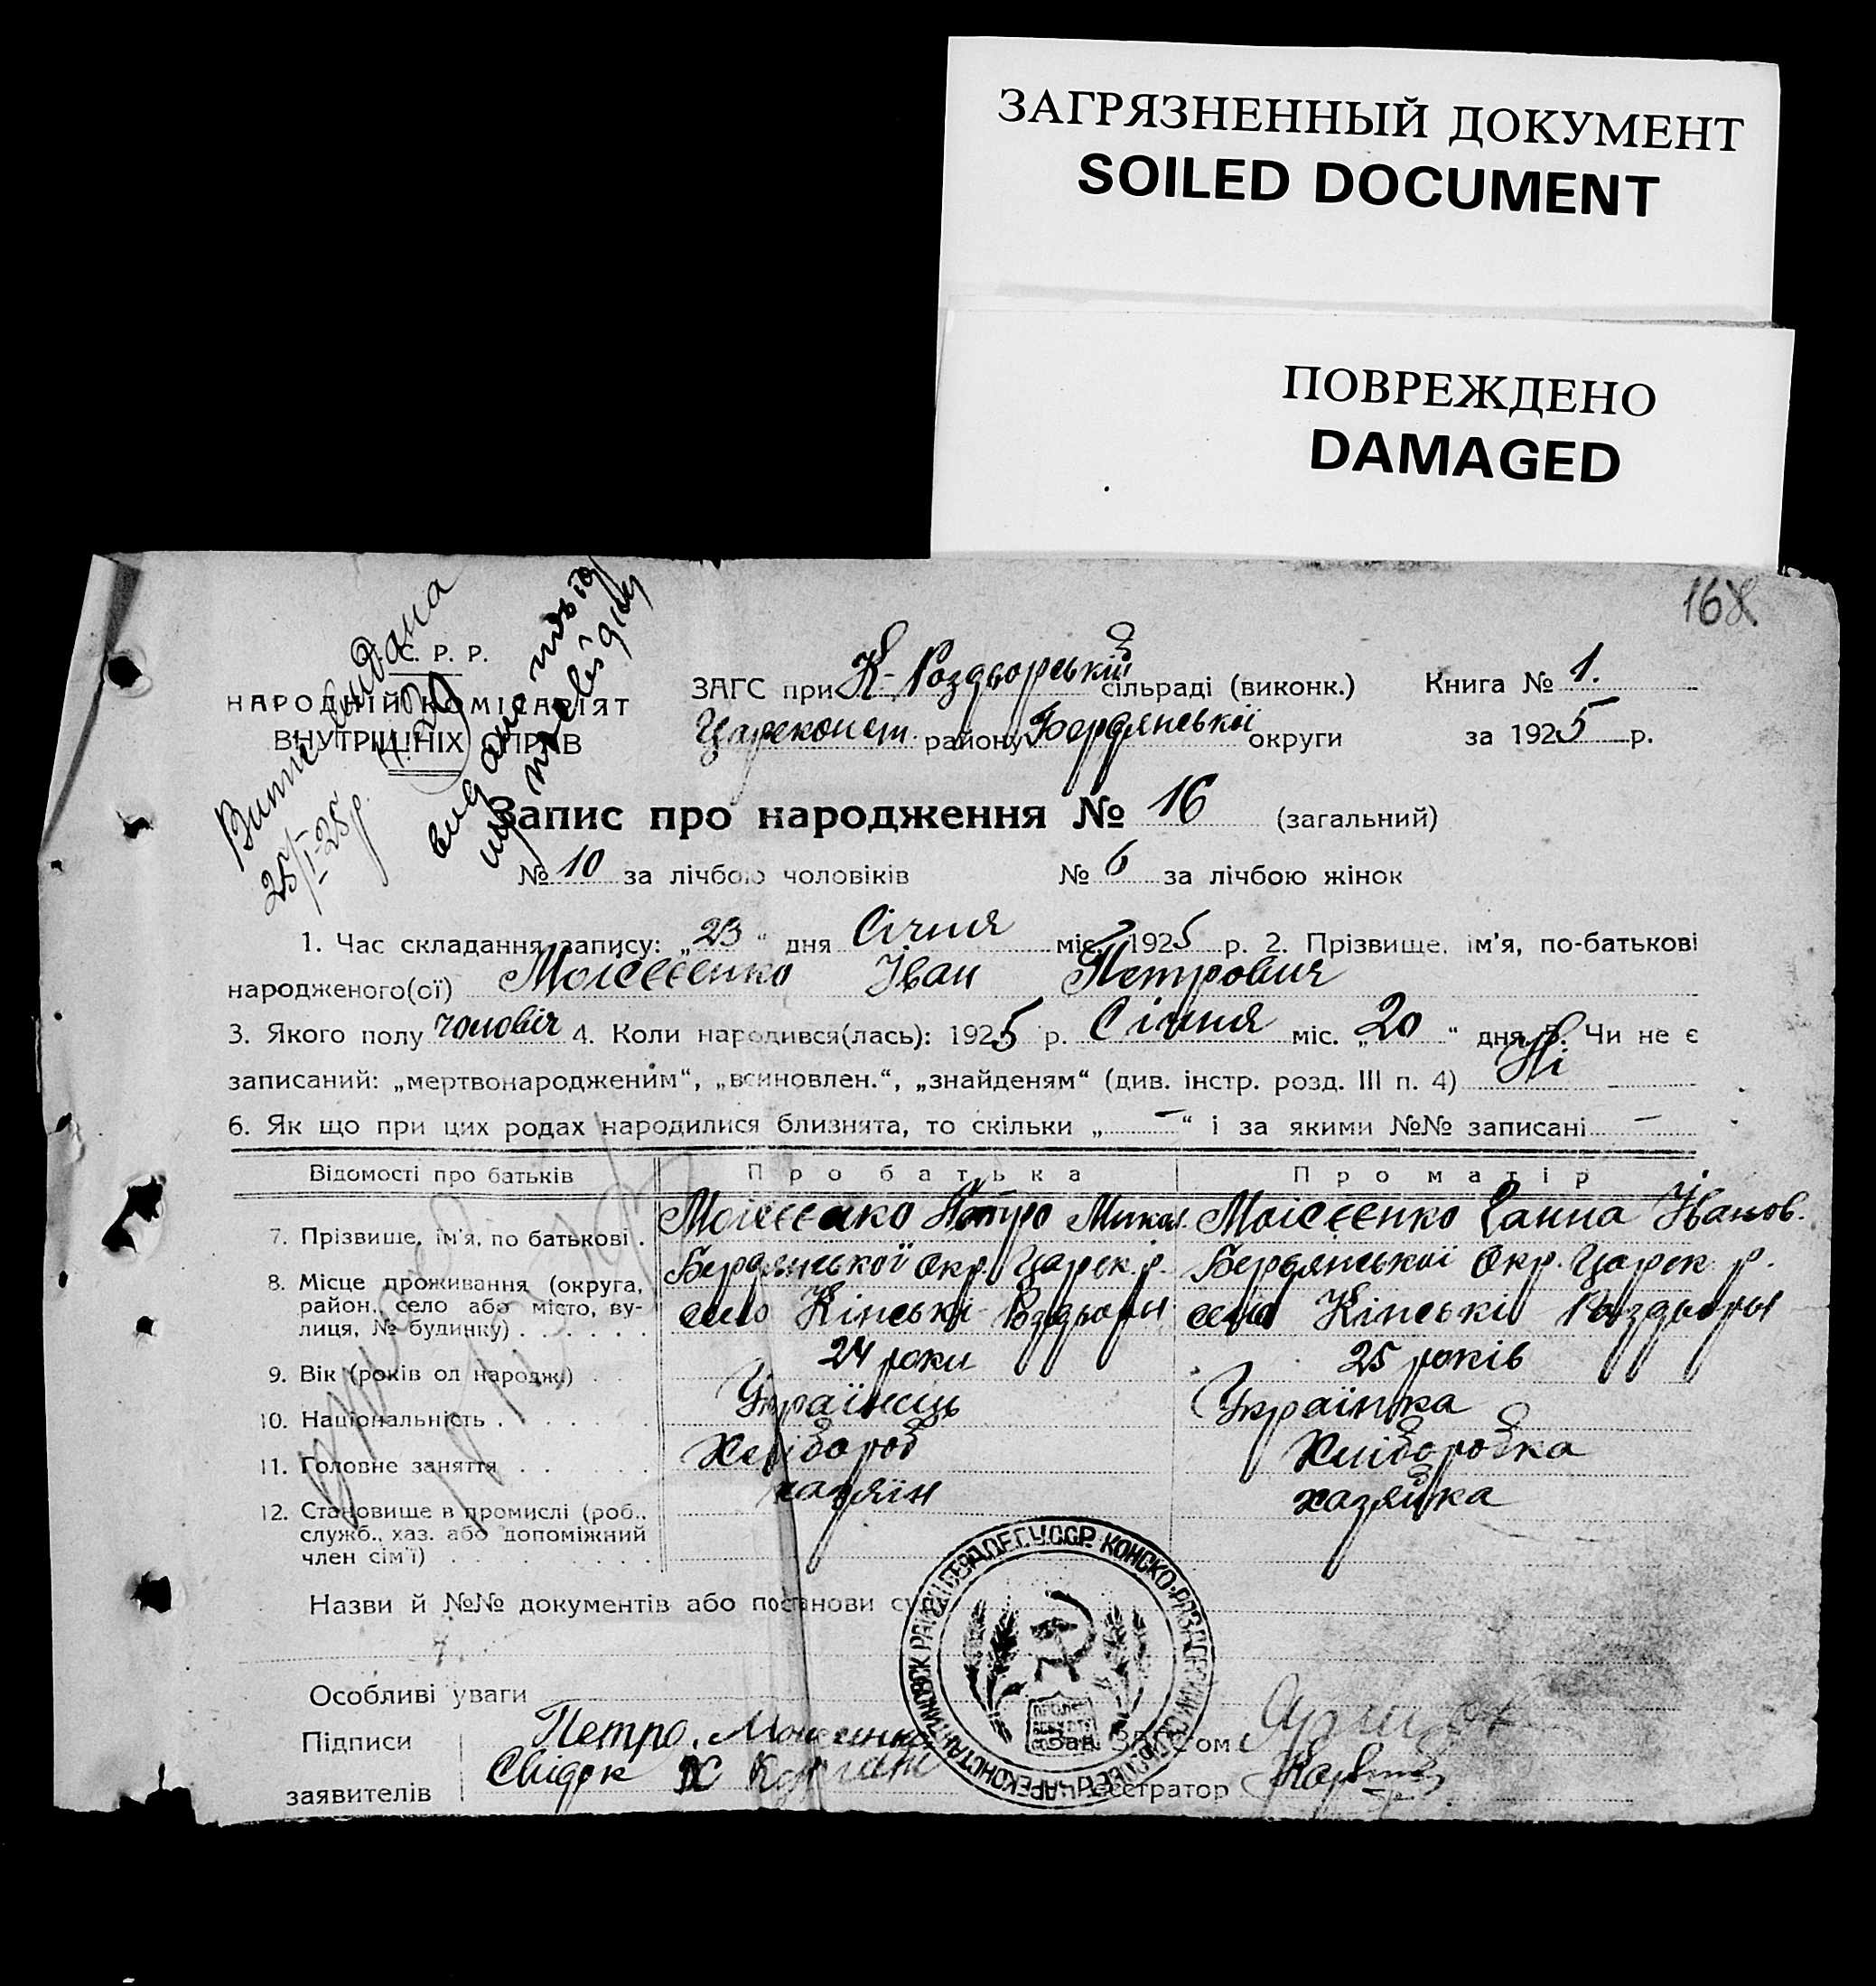 ЗАГРЯЗНЕННЫЙ ДОКУМЕНТ
SOILED DOCUMENT
ПОВРЕЖДЕНО
DAMAGED
168
Виписъ видана
25/I-25 р.
видано
С. Р. Р.
НАРОДНІЙ КОМІСАРІЯТ
ВНУТРІШНІХ СПРАВ
ЗАГС при К-Роздьорській сільраді (виконк.) Книга № 1.
Цареконст. району Бердянської округи за 1925 р.
Запис про народження № 16 (загальний)
№ 10 за лічбою чоловіків № 6 за лічбою жінок
1. Час складання запису: „23“ дня Січня міс. 1925 р. 2. Прізвище, ім'я, по-батькові
народженого(ої) Моісєєнко Іван Петрович
3. Якого полу чоловіч 4. Коли народився(лась): 1925 р. Січня міс. „20“ дня 5. Чи не є
записаний: „мертвонародженим“, „всиновлен.“, „знайденям“ (див. інстр. розд. III п. 4) Ні
6. Як що при цих родах народилися близнята, то скільки „—“ і за якими №№ записані —
Відомості про батьків Про батька Про матір
7. Прізвище, ім'я, по батькові . Моісєєнко Петро Микол. Моісєєнко Ганна Іванов.
8. Місце проживання (округа, район, село або місто, вулиця, № будинку) . . . . . .
Бердянської Окр. Царек. р. Бердянської Окр. Царек. р.
село Кінські Роздьори село Кінські Роздьоры
9. Вік (років од народж.) . . 24 роки 25 років
10. Національність . . . . . . Українець Українка
11. Головне заняття . . . . . Хлібороб Хліборобка
12. Становище в промислі (роб., служб., хаз. або допоміжний член сім'ї) . . . . . . . .
хазяїн хазяйка
Назви й №№ документів або постанови су
Особливі уваги
Підписи Петро Моісєенко Зав. ЗАГС'ом
заявителів Свідок Реєстратор
ЦАРЕКОНСТАНТИНОВСК РАЙ КОНСКО-РАЗДОРСКИЙ СЕЛЬ У.С.С.Р.